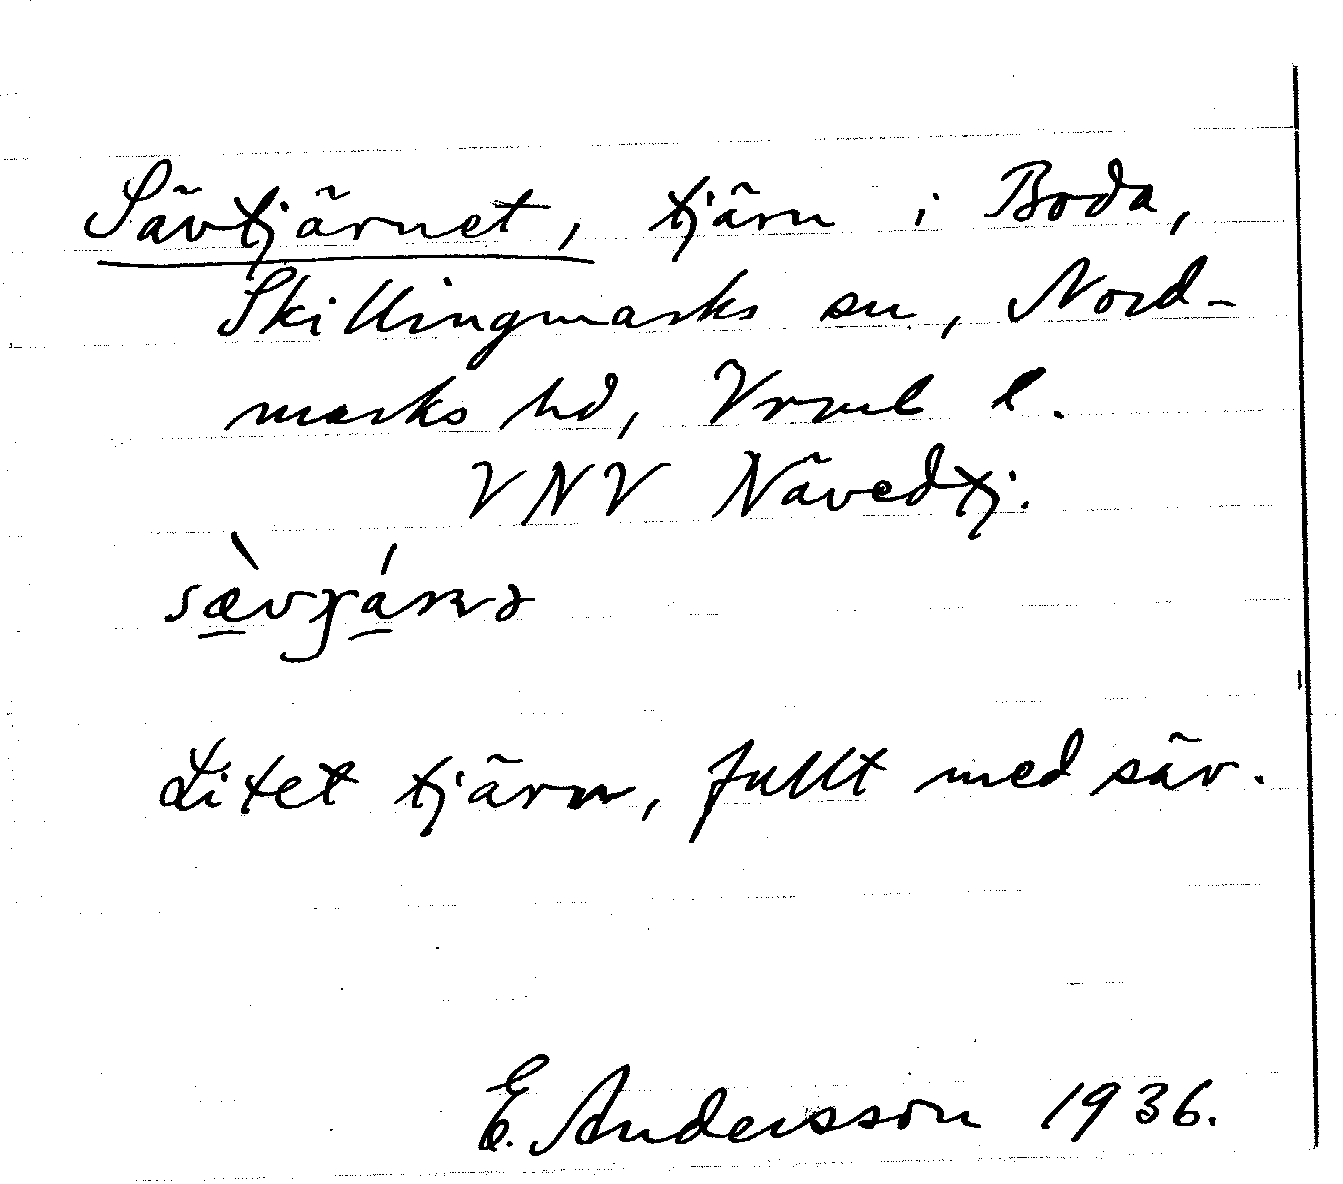 Sävtjärnet, tjärn i Boda,
Skillingmarks sn, Nord-
marks hd, Vrml l.
VNV Nävedtj.
Litet tjärn, fullt med säv.
E. Andersson 1936.